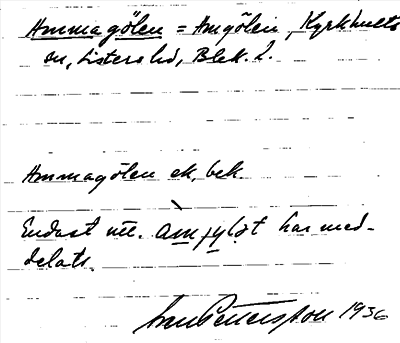 Ammagölen = Amgölen, Kyrkhults
sn, Listers hd, Blek. l.
Ammagölen ek. bek.
Endast utt. àmjylət har med-
delats.
1936